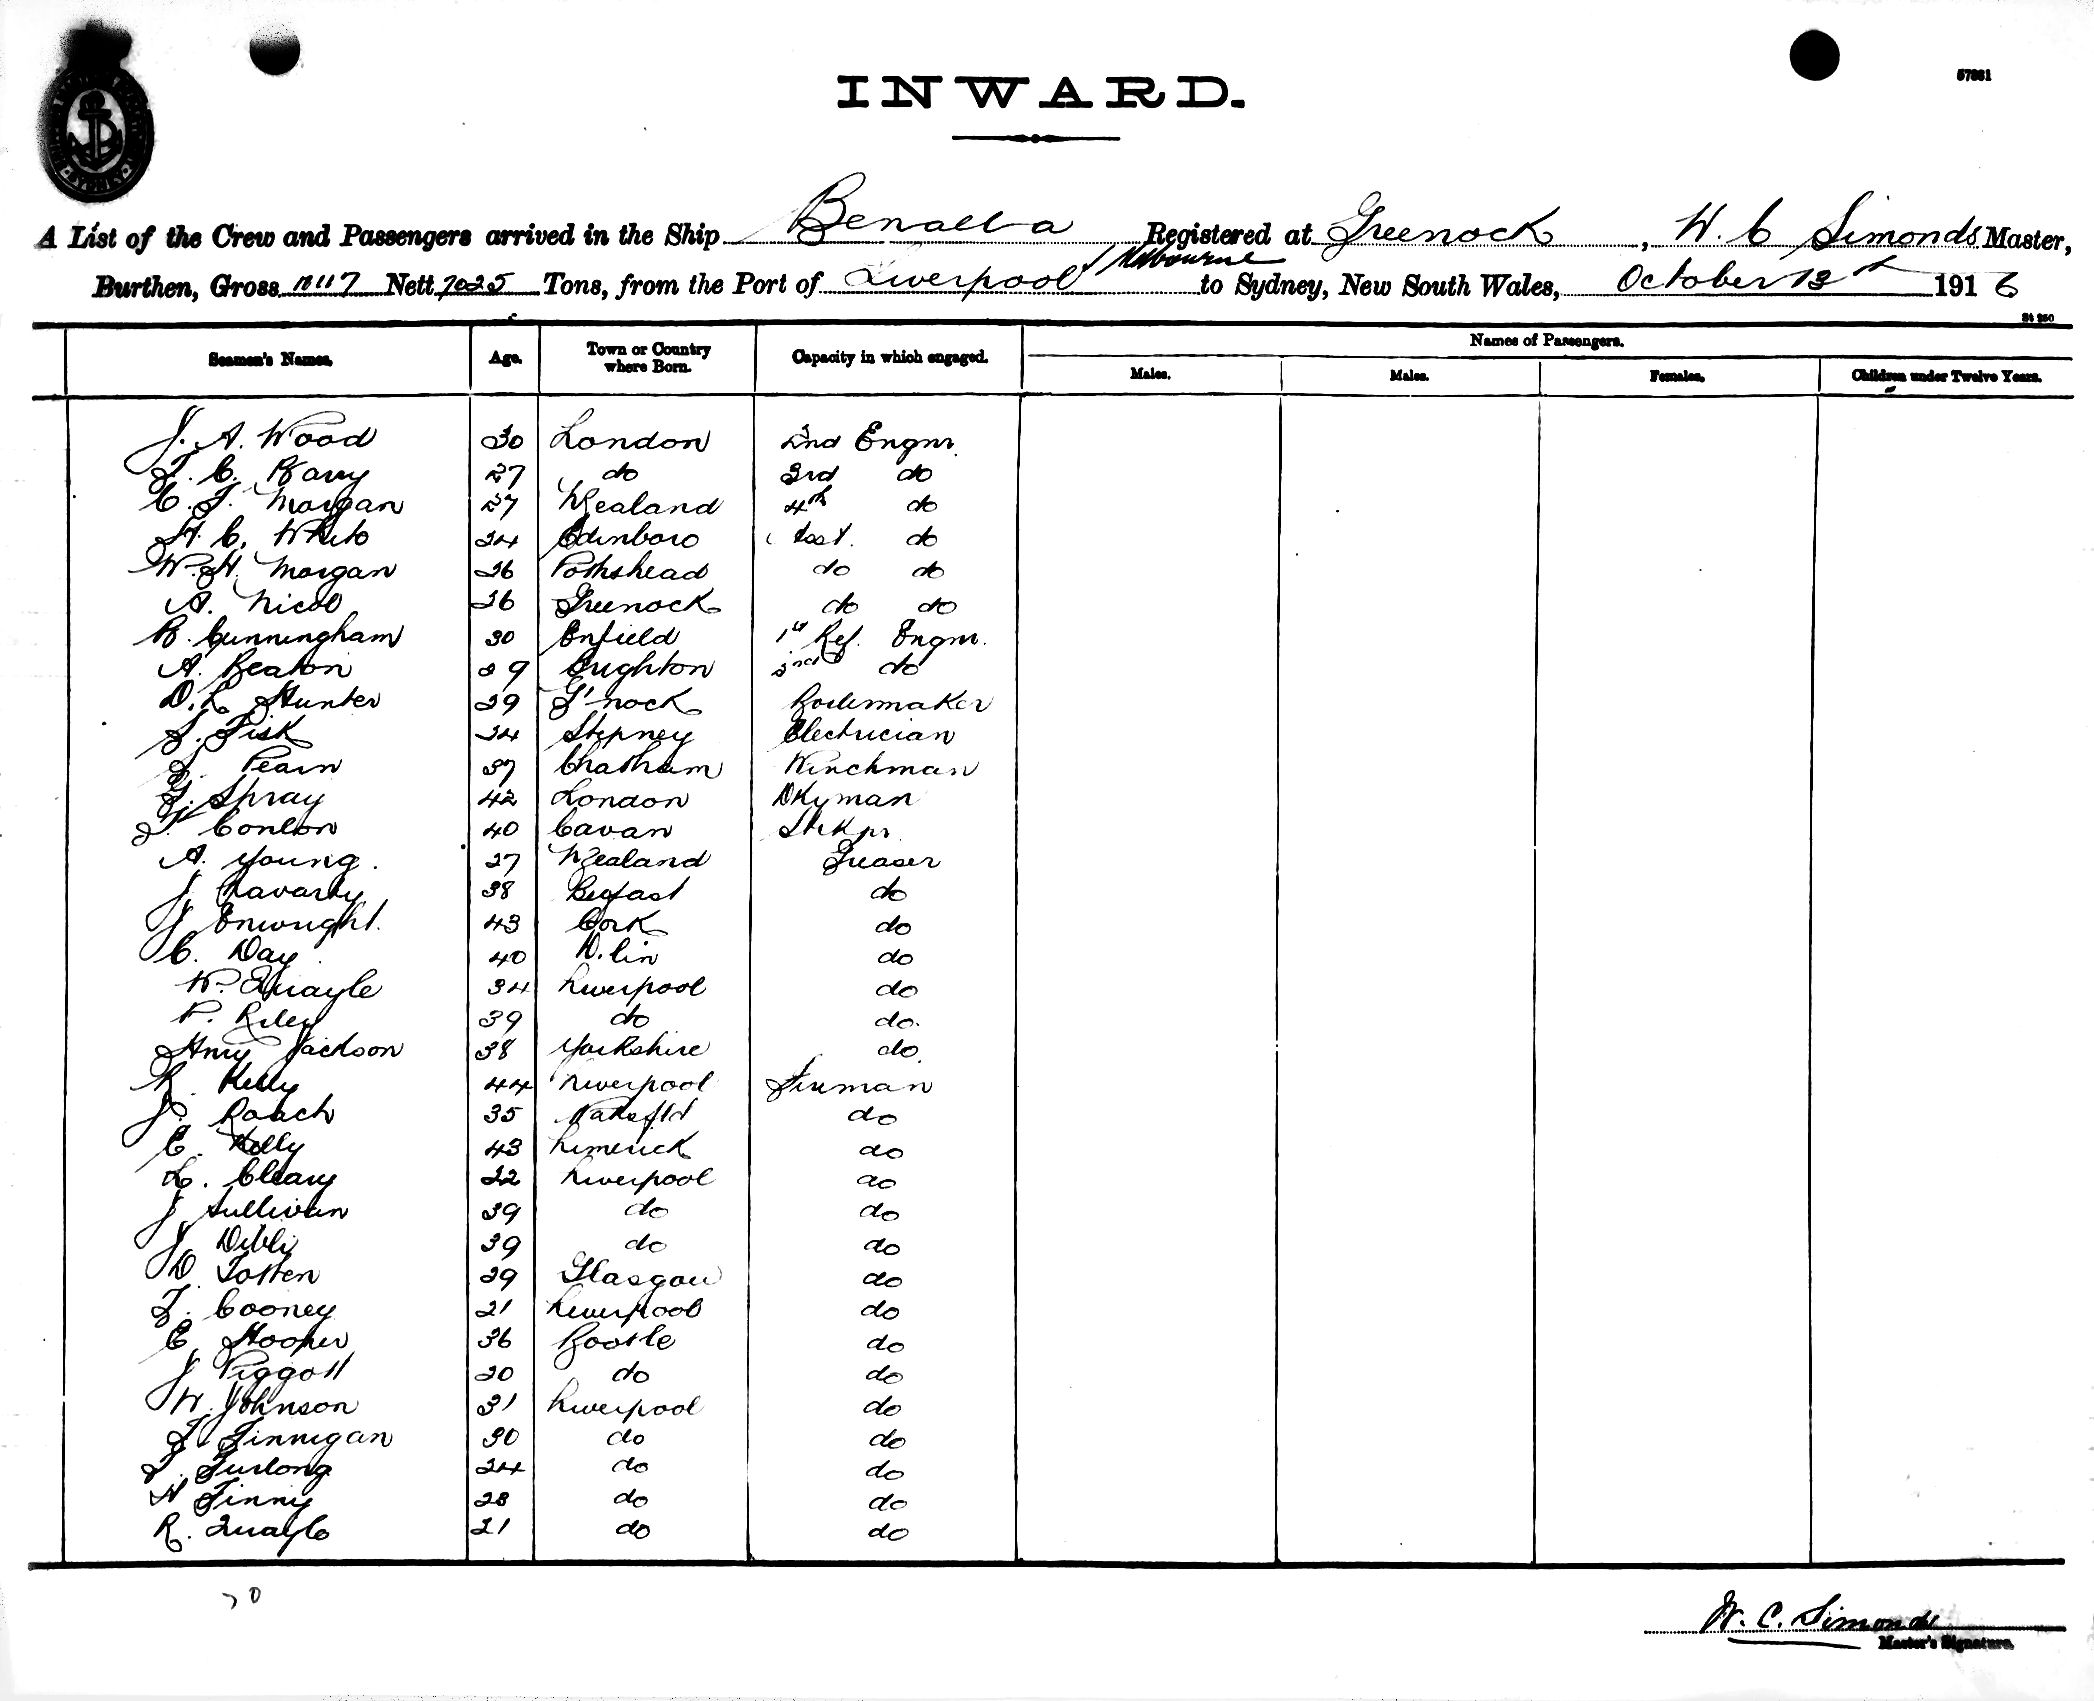 57881
INWARD.
A List of the Crew and Passengers arrived in the Ship Benalla Registered at Greenock, W. C Simonds Master,
Burthen, Gross 11117 Nett 7025 Tons, from the Port of Liverpool / Melbourne to Sydney, New South Wales, October 13th 1916
Seamen's Names. Age. Town or Country where Born. Capacity in which engaged. Names of Passengers.
Males. Males. Females. Children under Twelve Years.
J. A. Wood 30 London 2nd Engnr.
T. C. Barry 27 do 3rd do
C. T. Morgan 27 NZealand 4th do
H. C. White 24 Edinboro Asst. do
W. H. Morgan 26 do do
A. Nicol 26 Greenock do do
R. Cunningham 30 Enfield 1st Ref. Engnr.
A. Beaton 29 Brighton 2nd do
D. L. Hunter 29 G'nock Boilermaker
S. Fisk 24 Stepney Electrician
Pearn 37 Chatham Winchman
G. Spray 42 London Dkyman
T. Conlon 40 Cavan Strkpr.
A. Young. 27 NZealand Greaser
J Lavarty 38 Belfast do
J Enwright. 43 Cork do
C. Day 40 D.lin do
W. Quayle 34 Liverpool do
P. Riley 39 do do.
Hnry Jackson 38 Yorkshire do.
R. Kelly 44 Liverpool Fireman
J. Roach 35 do
C. Kelly 43 Limerick do
L. Cleary 22 Liverpool do
J Sullivan 39 do do
J 39 do do
D Totten 29 Glasgow do
T. Cooney 21 Liverpool do
C. Hooper 36 Bootle do
J Piggott 20 do do
W. Johnson 31 Liverpool do
T. Finnigan 30 do do
T. Furlong 24 do do
H Finny 28 do do
R. Quayle 21 do do
70
W. C. Simonds
Master's Signature.